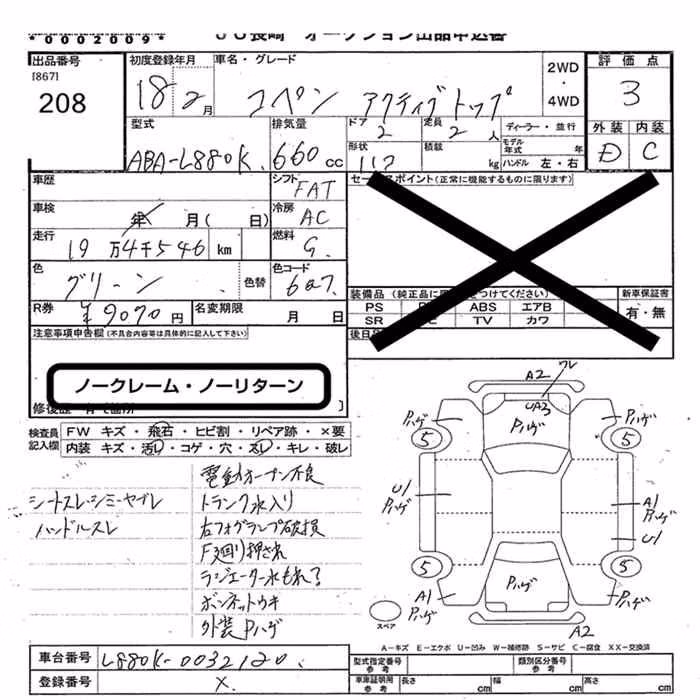 *0002009*
JU長崎 オークション出品申込書
出品番号 [867] 208
初度登録年月 18 2月
車名・グレード コペン アクティブトップ
2WD・4WD
評価点 3
外装 内装
D C
型式 ABA-L880K
排気量 660cc
ドア 2
定員 2人
ディーラー・並行
形状
積載 kg
モデル年式 年
ハンドル 左・右
車歴
シフト FAT
セールスポイント(正常に機能するものに限ります)
車検 年 月( 日)
冷房 AC
走行 19万4千546km
燃料 G
色 グリーン
色替
色コード
装備品
ABS エアB
SR TV カワ
新車保証書 有・無
R券 ¥9070円
名変期限 月 日
後日
注意事項申告欄(不具合内容等は具体的に記入して下さい)
ノークレーム・ノーリターン
修復歴
検査員記入欄
FW キズ・飛石・ヒビ割・リペア跡・×要
内装 キズ・汚レ・コゲ・穴・スレ・キレ・破レ
電動オープン不良
シートスレ・シミ・ヤブレ
トランク水入り
ハンドルスレ
左フォグランプ破損
F廻り押され
ラジエーター水もれ?
ボンネットウキ
外装Pハゲ
A2 ワレ
UA3
Pハゲ Pハゲ Pハゲ
5 5
U1 Pハゲ
A1 Pハゲ
U1
5 5
Pハゲ
A1 Pハゲ
Pハゲ
A2
スペア
A-キズ E-エクボ U-凹み W-補修跡 S-サビ C-腐食 XX-交換済
車台番号 L880K-0032120
型式指定番号 参考
類別区分番号 参考
登録番号 X.
車庫証明用 参考
長さ cm
幅 cm
高さ cm